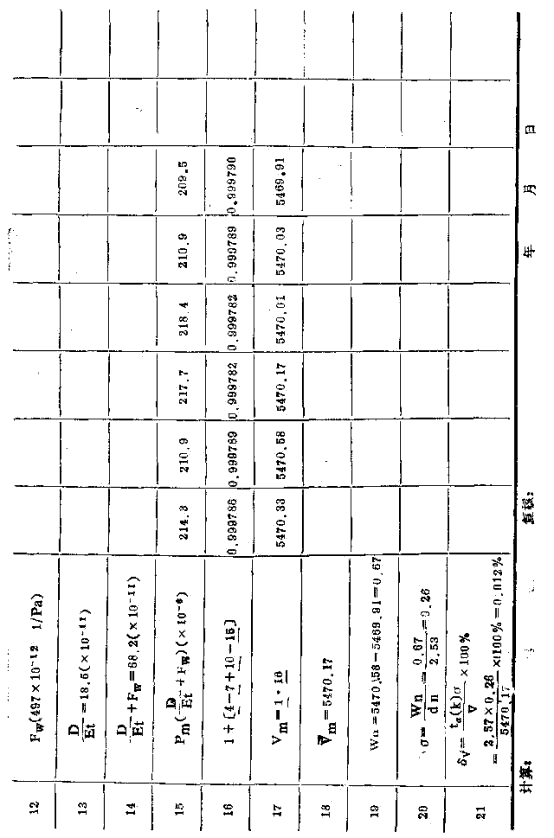 12 F_w(497×10⁻¹² 1/Pa)
13 D/Et=18.5(×10⁻¹¹)
14 D/Et+F_w=68.2(×10⁻¹¹)
15 P_m(D/Et+F_w)(×10⁻⁶) 214.3 210.9 217.7 218.4 210.9 209.5
16 1+[4-7+10-15] 0.999786 0.999789 0.999782 0.999782 0.999789 0.999790
17 V_m=1·16 5470.33 5470.58 5470.17 5470.01 5470.03 5469.91
18 V̄_m=5470.17
19 Wn=5470.58-5469.91=0.67
20 σ=Wn/dn=0.67/2.53=0.26
21 δV̄=t_α(k)σ/V̄×100%
=2.57×0.26/5470.17×100%=0.012%
计算: 复核: 年 月 日